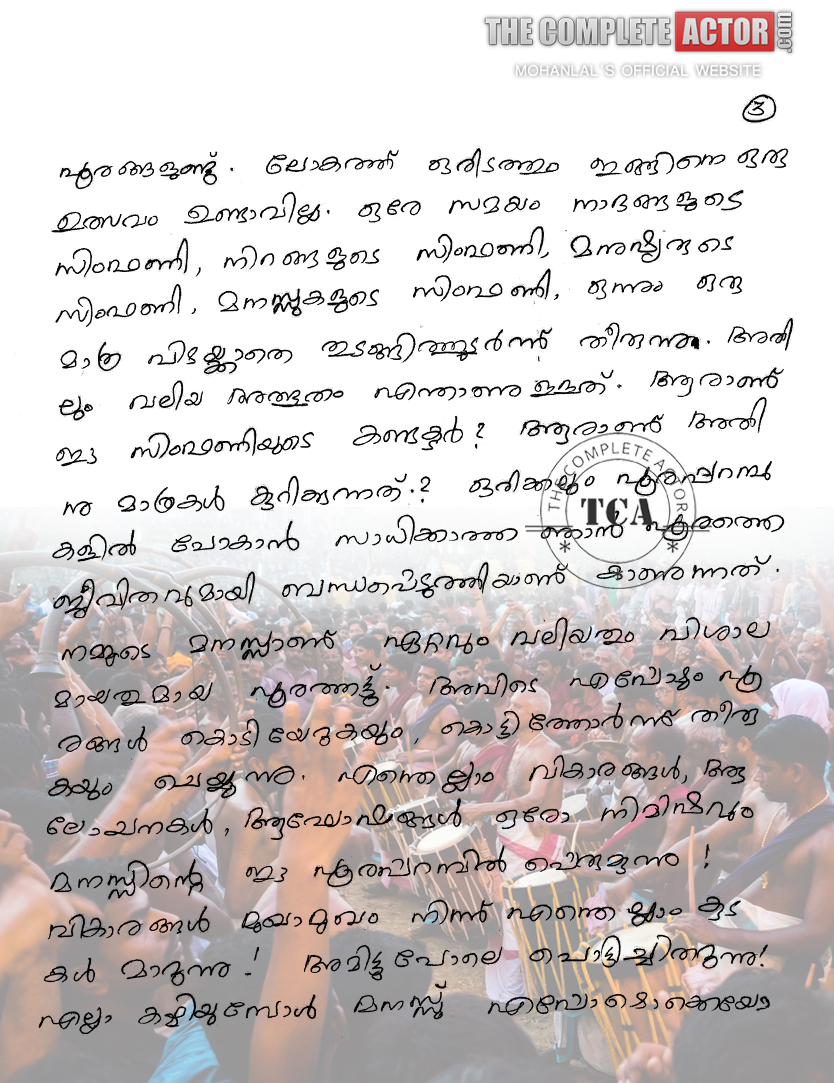 THE COMPLETE ACTOR.com
MOHANLAL'S OFFICIAL WEBSITE
3
പൂരങ്ങളുണ്ട്. ലോകത്ത് ഒരിടത്തും ഇങ്ങിനെ ഒരു
ഉത്സവം ഉണ്ടാവില്ല. ഒരേ സമയം നാദങ്ങളുടെ
സിംഫണി, നിറങ്ങളുടെ സിംഫണി, മനുഷ്യരുടെ
സിംഫണി, മനസ്സുകളുടെ സിംഫണി, ഒന്നും ഒരു
മാത്ര പിഴയ്ക്കാതെ തുടങ്ങിത്തുടർന്ന് തീരുന്നു. അതി
ലും വലിയ അത്ഭുതം എന്താണുള്ളത്. ആരാണ്
ഈ സിംഫണിയുടെ കണ്ടക്ടർ? ആരാണ് അതി
നു മാത്രകൾ കുറിക്കുന്നത്.? ഒരിക്കലും പൂരപ്പറമ്പു
കളിൽ പോകാൻ സാധിക്കാത്ത ഞാൻ പൂരത്തെ
ജീവിതവുമായി ബന്ധപ്പെടുത്തിയാണ് കാണുന്നത്.
നമ്മുടെ മനസ്സാണ് ഏറ്റവും വലിയതും വിശാല
മായതുമായ പൂരത്തട്ട്. അവിടെ എപ്പോഴും പൂ
രങ്ങൾ കൊടിയേറുകയും, കൊട്ടിത്തോർന്ന് തീരു
കയും ചെയ്യുന്നു. എന്തെല്ലാം വികാരങ്ങൾ, ആ
ലോചനകൾ, ആഘോഷങ്ങൾ ഒരോ നിമിഷവും
മനസ്സിന്റെ ഈ പൂരപ്പറമ്പിൽ പെരുകുന്നു !
വികാരങ്ങൾ മുഖാമുഖം നിന്ന് എന്തെല്ലാം കുട
കൾ മാറുന്നു ! അമിട്ടുപോലെ പൊട്ടിച്ചിതറുന്നു!
എല്ലാ കഴിയുമ്പോൾ മനസ്സ് എപ്പോഴൊക്കെയോ
THE COMPLETE ACTOR
TCA